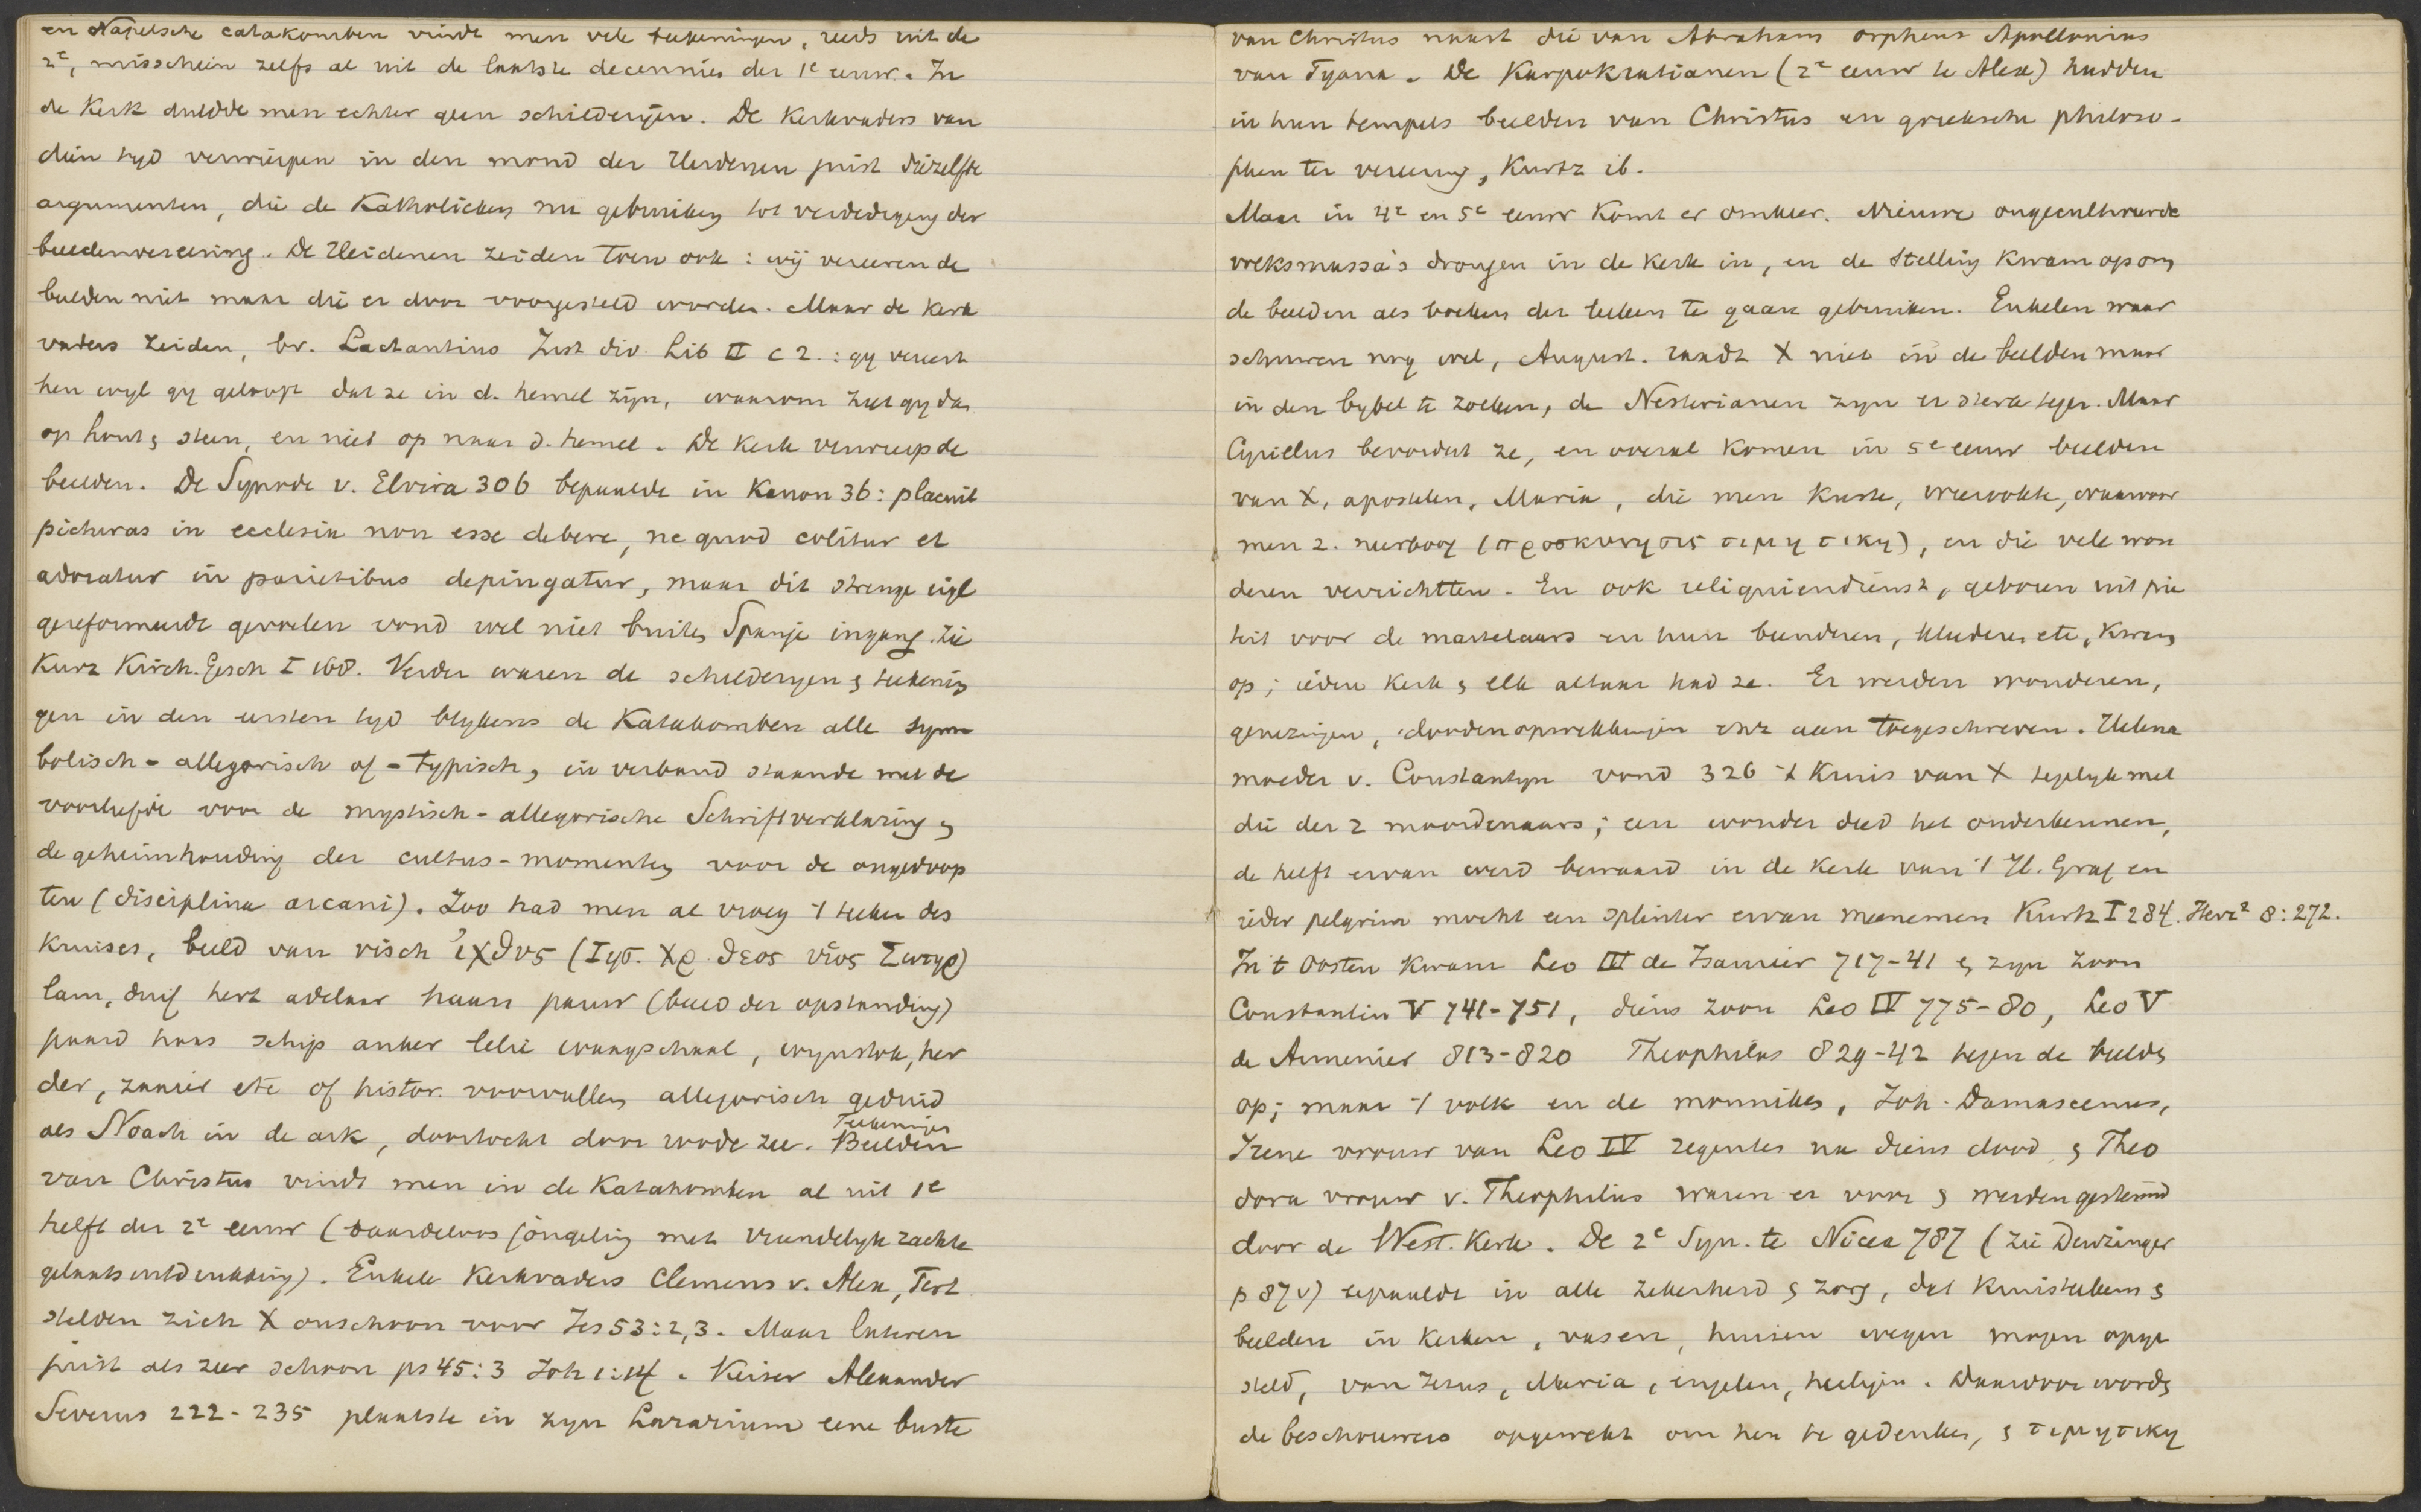 en Napelsche catakomben vindt men vele teekeningen, reeds uit de
2e, misschien zelfs al uit de laatste decennien der 1e eeuw. In
de Kerk duldde men echter geen schilderijen. De Kerkvaders van
dien tyd verwierpen in den mond der Heidenen juist diezelfde
argumenten, die de Katholieken nu gebruiken tot verdediging der
beeldenvereering. De Heidenen zeiden toen ook: wij vereeren de
beelden niet maar die er door voorgesteld worden. Maar de Kerk
vaders zeiden, bv. Lactantius Inst div. Lib II c 2.: gy vereert
hen wyl gy gelooft dat ze in d. hemel zijn, waarom ziet gy dan
op hout & steen, en niet op naar d. hemel. De Kerk verwierp de
beelden. De Synode v. Elvira 306 bepaalde in Kanon 36: placuit
picturas in ecclesia non esse debere, ne quod colitur et
adoratur in parietibus depingatur, maar dit strenge eigl
gereformeerde gevoelen vond wel niet buiten Spanje ingang. Zie
Kurz Kirch. Gesch I 168. Verder waren de schilderyen & teekenin
gen in den eersten tyd blykens de Katakomben alle sym
bolisch-allegorisch of -typisch, in verband staande met de
voorliefde voor de mystisch-allegorische Schriftverklaring en
de geheimhouding der cultus-momenten voor de ongedoop
ten (disciplina arcani). Zoo had men al vroeg 't teeken des
Kruises, beeld van visch ἰχθυς (Ιησ. Χρ. θεος υἱος Σωτηρ)
lam, duif hert adelaar haan pauw (beeld der opstanding)
paard haas schip anker lelie waagschaal, wynstok, her
der, zaaier etc of histor. voorvallen allegorisch geduid
als Noach in de ark, doortocht door roode zee. Teekeningen Beelden
van Christus vindt men in de Katakomben al uit 1e
helft der 2e eeuw (baardeloos jongeling met vriendelyk zachte
gelaatsuitdrukking). Enkele Kerkvaders Clemens v. Alex, Tert
stelden zich X onschoon voor Jes 53:2,3. Maar lateren
juist als zeer schoon ps 45:3 Joh 1:14. Keizer Alexander
Severus 222-235 plaatste in zyn Lararium eene buste
van Christus naast die van Abraham Orpheus Apollonius
van Tyana. De Karpokratianen (2e eeuw te Alex) hadden
in hun tempels beelden van Christus en grieksche philoso-
phen ter vereering, Kurtz ib.
Maar in 4e en 5e eeuw komt er omkeer. Nieuwe ongecultiveerde
volksmassa's drongen in de Kerk in, en de stelling kwam op om
de beelden als boeken der leeken te gaan gebruiken. Enkelen waar
schuwen nog wel, August. raadt X niet in de beelden maar
in den bybel te zoeken, de Nestorianen zyn er sterk tegen. Maar
Cyrillus bevordert ze, en overal komen in 5e eeuw beelden
van X, apostelen, Maria, die men kuste, bewierookte, waarvoor
men z. neerboog (προσκυνησις τιμητικη), en die vele won
deren verrichtten. En ook reliquiendienst, geboren uit pië
teit voor de martelaars en hun beenderen, kleederen etc, kwam
op; iedere Kerk & elk altaar had ze. Er werden wonderen,
genezingen, doodenopwekkingen enz aan toegeschreven. Helena
moeder v. Constantyn vond 326 't Kruis van X tegelyk met
die der 2 moordenaars; een wonder deed het onderkennen,
de helft ervan werd bewaard in de kerk van 't H. Graf en
ieder pelgrim mocht een splinter ervan meenemen Kurtz I 284. Herz² 8:272.
In 't Oosten kwam Leo III de Isaurier 717-41 & zyn zoon
Constantin V 741-751, diens zoon Leo IV 775-80, Leo V
de Armenier 813-820 Theophilus 829-42 tegen de beelden
op; maar 't volk en de monniken, Joh. Damascenus,
Irene vrouw van Leo IV regentes na diens dood & Theo
dora vrouw v. Theophilus waren er voor & werden gesteund
door de West. Kerk. De 2e Syn. te Nicea 787 (zie Denzinger
p 87v) bepaalde in alle zekerheid & zorg, dat kruisteekens &
beelden in kerken, vasen, huisen wegen mogen opge
steld, van Jesus, Maria, engelen, heiligen. Daardoor worden
de beschouwers opgewekt om hen te gedenken, & τιμητικη